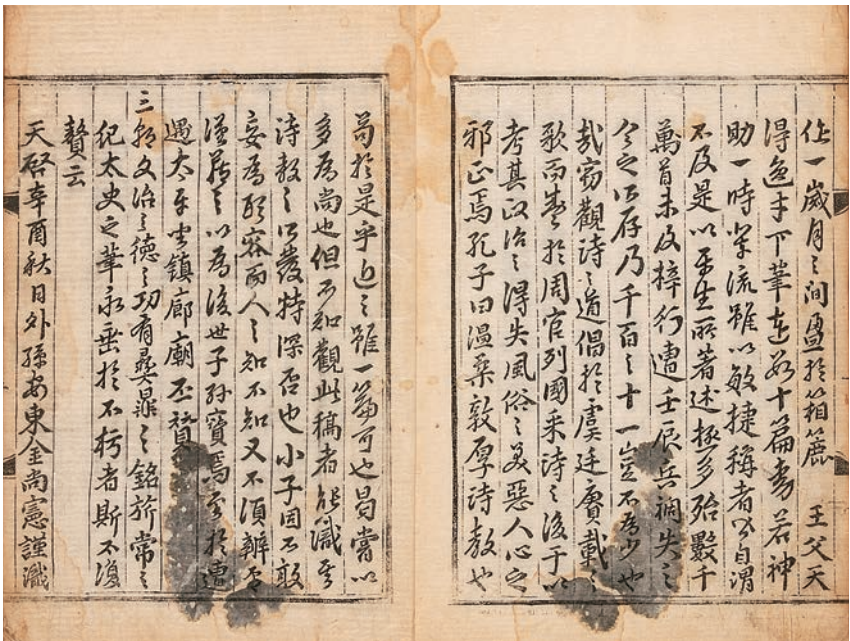 作一歲月之間盈於箱簏 王父天
得逸才下筆連數十篇勢若神
助一時輩流雖以敏捷稱者皆自謂
不及是以平生所著述極多殆數千
萬首未及梓行遭壬辰兵禍失之
今之所存乃千百之十一豈不爲少也
哉竊觀詩之道倡於虞廷賡載之
歌而盛於周官列國采詩之後于以
考其政治之得失風俗之美惡人心之
邪正焉孔子曰溫柔敦厚詩敎也
苟於是乎近之雖一篇可也曷嘗以
多爲尚也但不知觀此稿者能識吾
詩敎之所發特深否也小子固不敢
妄爲形容而人之知不知又不須辨
謹藏之以爲後世子孫寶焉至於遭
遇太平坐鎭廊廟丕贊
三朝文治之德之功有彛鼎之銘旂常之
紀太史之筆永垂於不朽者斯不復
贅云
天啓辛酉秋日外孫安東金尚憲謹識